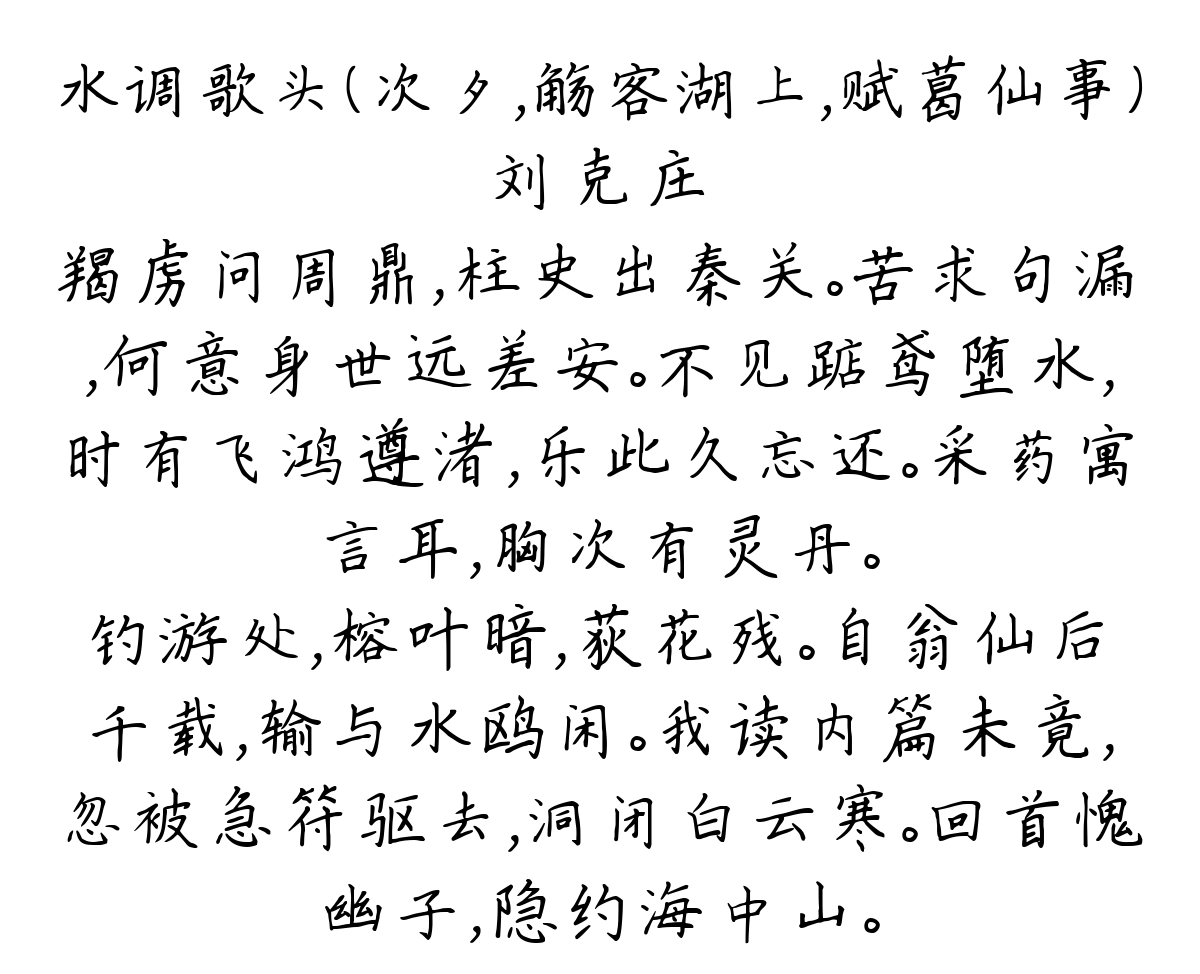 水调歌头(次夕,觞客湖上,赋葛仙事)
刘克庄
羯虏问周鼎,柱史出秦关。苦求句漏
,何意身世远差安。不见踮鸢堕水,
时有飞鸿遵渚,乐此久忘还。采药寓
言耳,胸次有灵丹。
钓游处,榕叶暗,荻花残。自翁仙后
千载,输与水鸥闲。我读内篇未竟,
忽被急符驱去,洞闭白云寒。回首愧
幽子,隐约海中山。